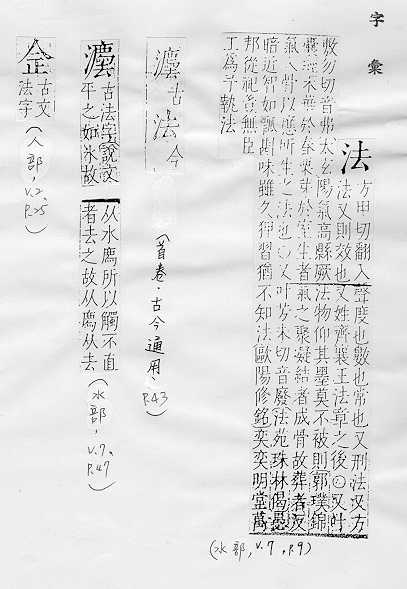 字彙
法
方甲切翻入聲度也數也常也又刑法又方
法又則效也又姓齊襄王法章之後○又叶
敷勿切音弗太玄陽氣高縣厥法物仰其墨莫不被則郭璞錦
氣入骨以應所生之法也○又叶芳未切音廢法苑珠林偈愚
暗近智如瓢斟味雖久狎習猶不知法歐陽修銘奕奕明堂萬
邦從祀豈無臣
工為予執法
(水部, V.7, P.9)
灋古
法今
(首卷·古今通用, P.43)
灋
古法字說文
平之如水故
从水廌所以觸不直
者去之故从廌从去
(水部, V.7, P.47)
佱
古文
法字
(人部, V.2, P.25)